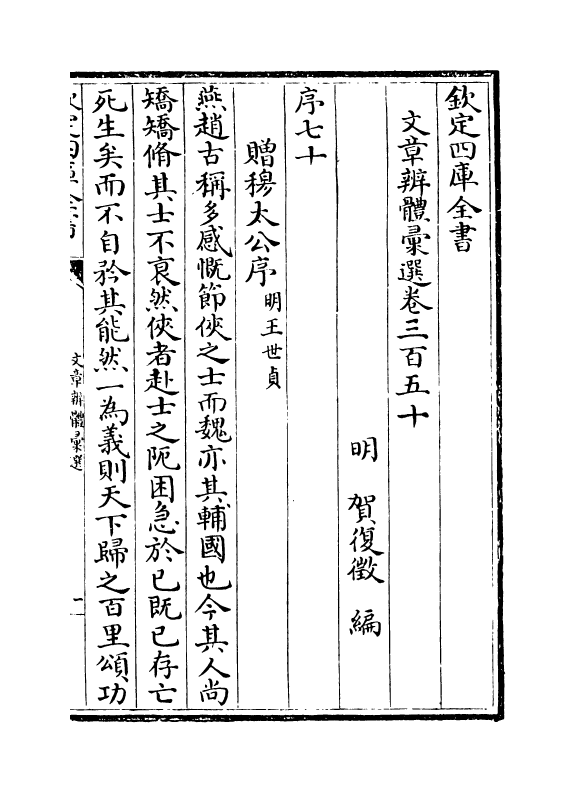 欽定四庫全書
文章辨體彚選卷三百五十
明 賀復徵 編
序七十
贈穆太公序明王世貞
燕趙古稱多感慨節俠之士而魏亦其輔國也今其人尚
矯矯脩其士不衰然俠者赴士之阨困急於已既已存亡
死生矣而不自矜其能然一為義則天下歸之百里頌功
欽定四庫全書
文章辨體彚選
一